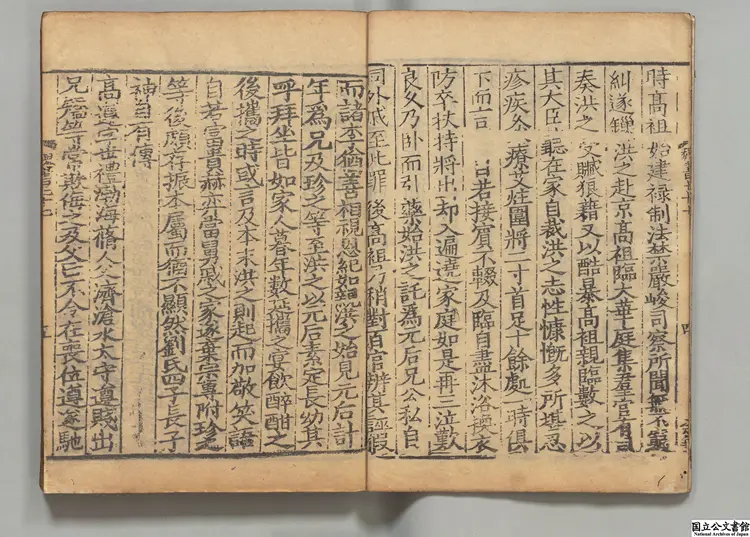 時高祖始建祿制法禁嚴峻司察所聞無不窮
糾遂鏁洪之赴京高祖臨大華庭集羣官有司
奏洪之受贓狼藉又以酷暴高祖親臨數之以
其大臣聽在家自裁洪之志性慷慨多所堪忍
疹疾灸療艾炷圍將二寸首足十餘處一時俱
下而言自若接賓不輟及臨自盡沐浴換衣
防卒扶持將出却入遍遶家庭如是再三泣歎
良久乃卧而引藥始洪之託為元后兄公私自
同外戚至此罪後高祖乃稍對百官辨其誣假
而諸李猶善相視恩紀如親洪之始見元后計
年為兄及珍之等至洪之以元后素定長幼其
呼拜坐皆如家人暮年數延攜之宴飲醉酣之
後攜之時或言及本末洪之則起而加敬笑語
自若富貴赫弈當舅戚之家遂棄宗專附珍之
等後頗存振本屬而猶不顯然劉氏四子長子
神自有傳
高遵字世禮渤海蓨人父濟滄水太守遵賤出
兄等常欺侮之及父亡不令在喪位遵遂馳
国立公文書館
National Archives of Japan